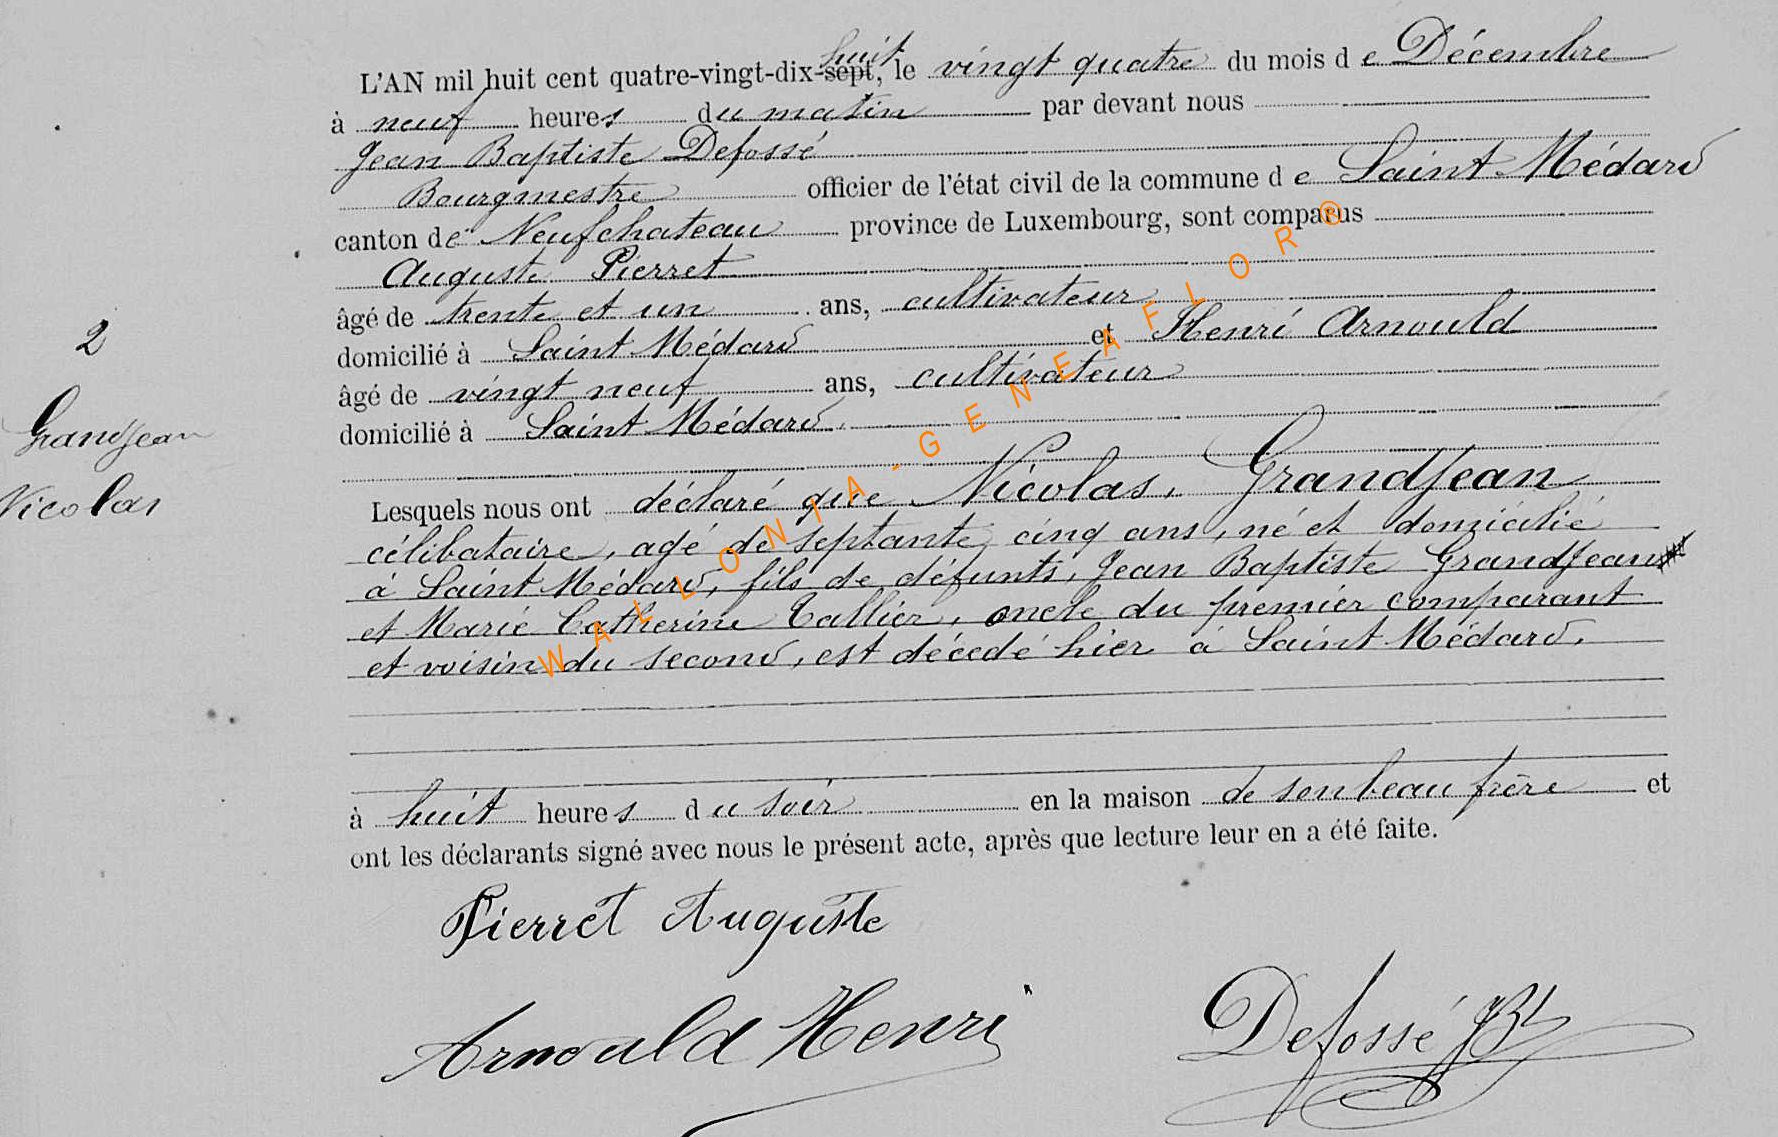 L'AN mil huit cent quatre-vingt-dix-sept, huit le vingt quatre du mois de Décembre
à neuf heures du matin par devant nous
Jean Baptiste Defossé
Bourgmestre officier de l'état civil de la commune de Saint Médard
canton de Neufchateau province de Luxembourg, sont comparus
Auguste Pierret
âgé de trente et un ans, cultivateur
domicilié à Saint Médard et Henri Arnould
âgé de vingt neuf ans, cultivateur
domicilié à Saint Médard.
2
GrandJean
Nicolas
Lesquels nous ont déclaré que Nicolas, GrandJean
célibataire, agé de septante cinq ans, né et domicilié
à Saint Médard, fils de défunts, Jean Baptiste GrandJean
et Marie Catherine Tallier, oncle du premier comparant
et voisin du second, est décédé hier à Saint Médard,
à huit heures du soir en la maison de son beau frère et
ont les déclarants signé avec nous le présent acte, après que lecture leur en a été faite.
Pierret Auguste
Arnould Henri
Defossé JBt
WALLONIA-GENEAFLOR®